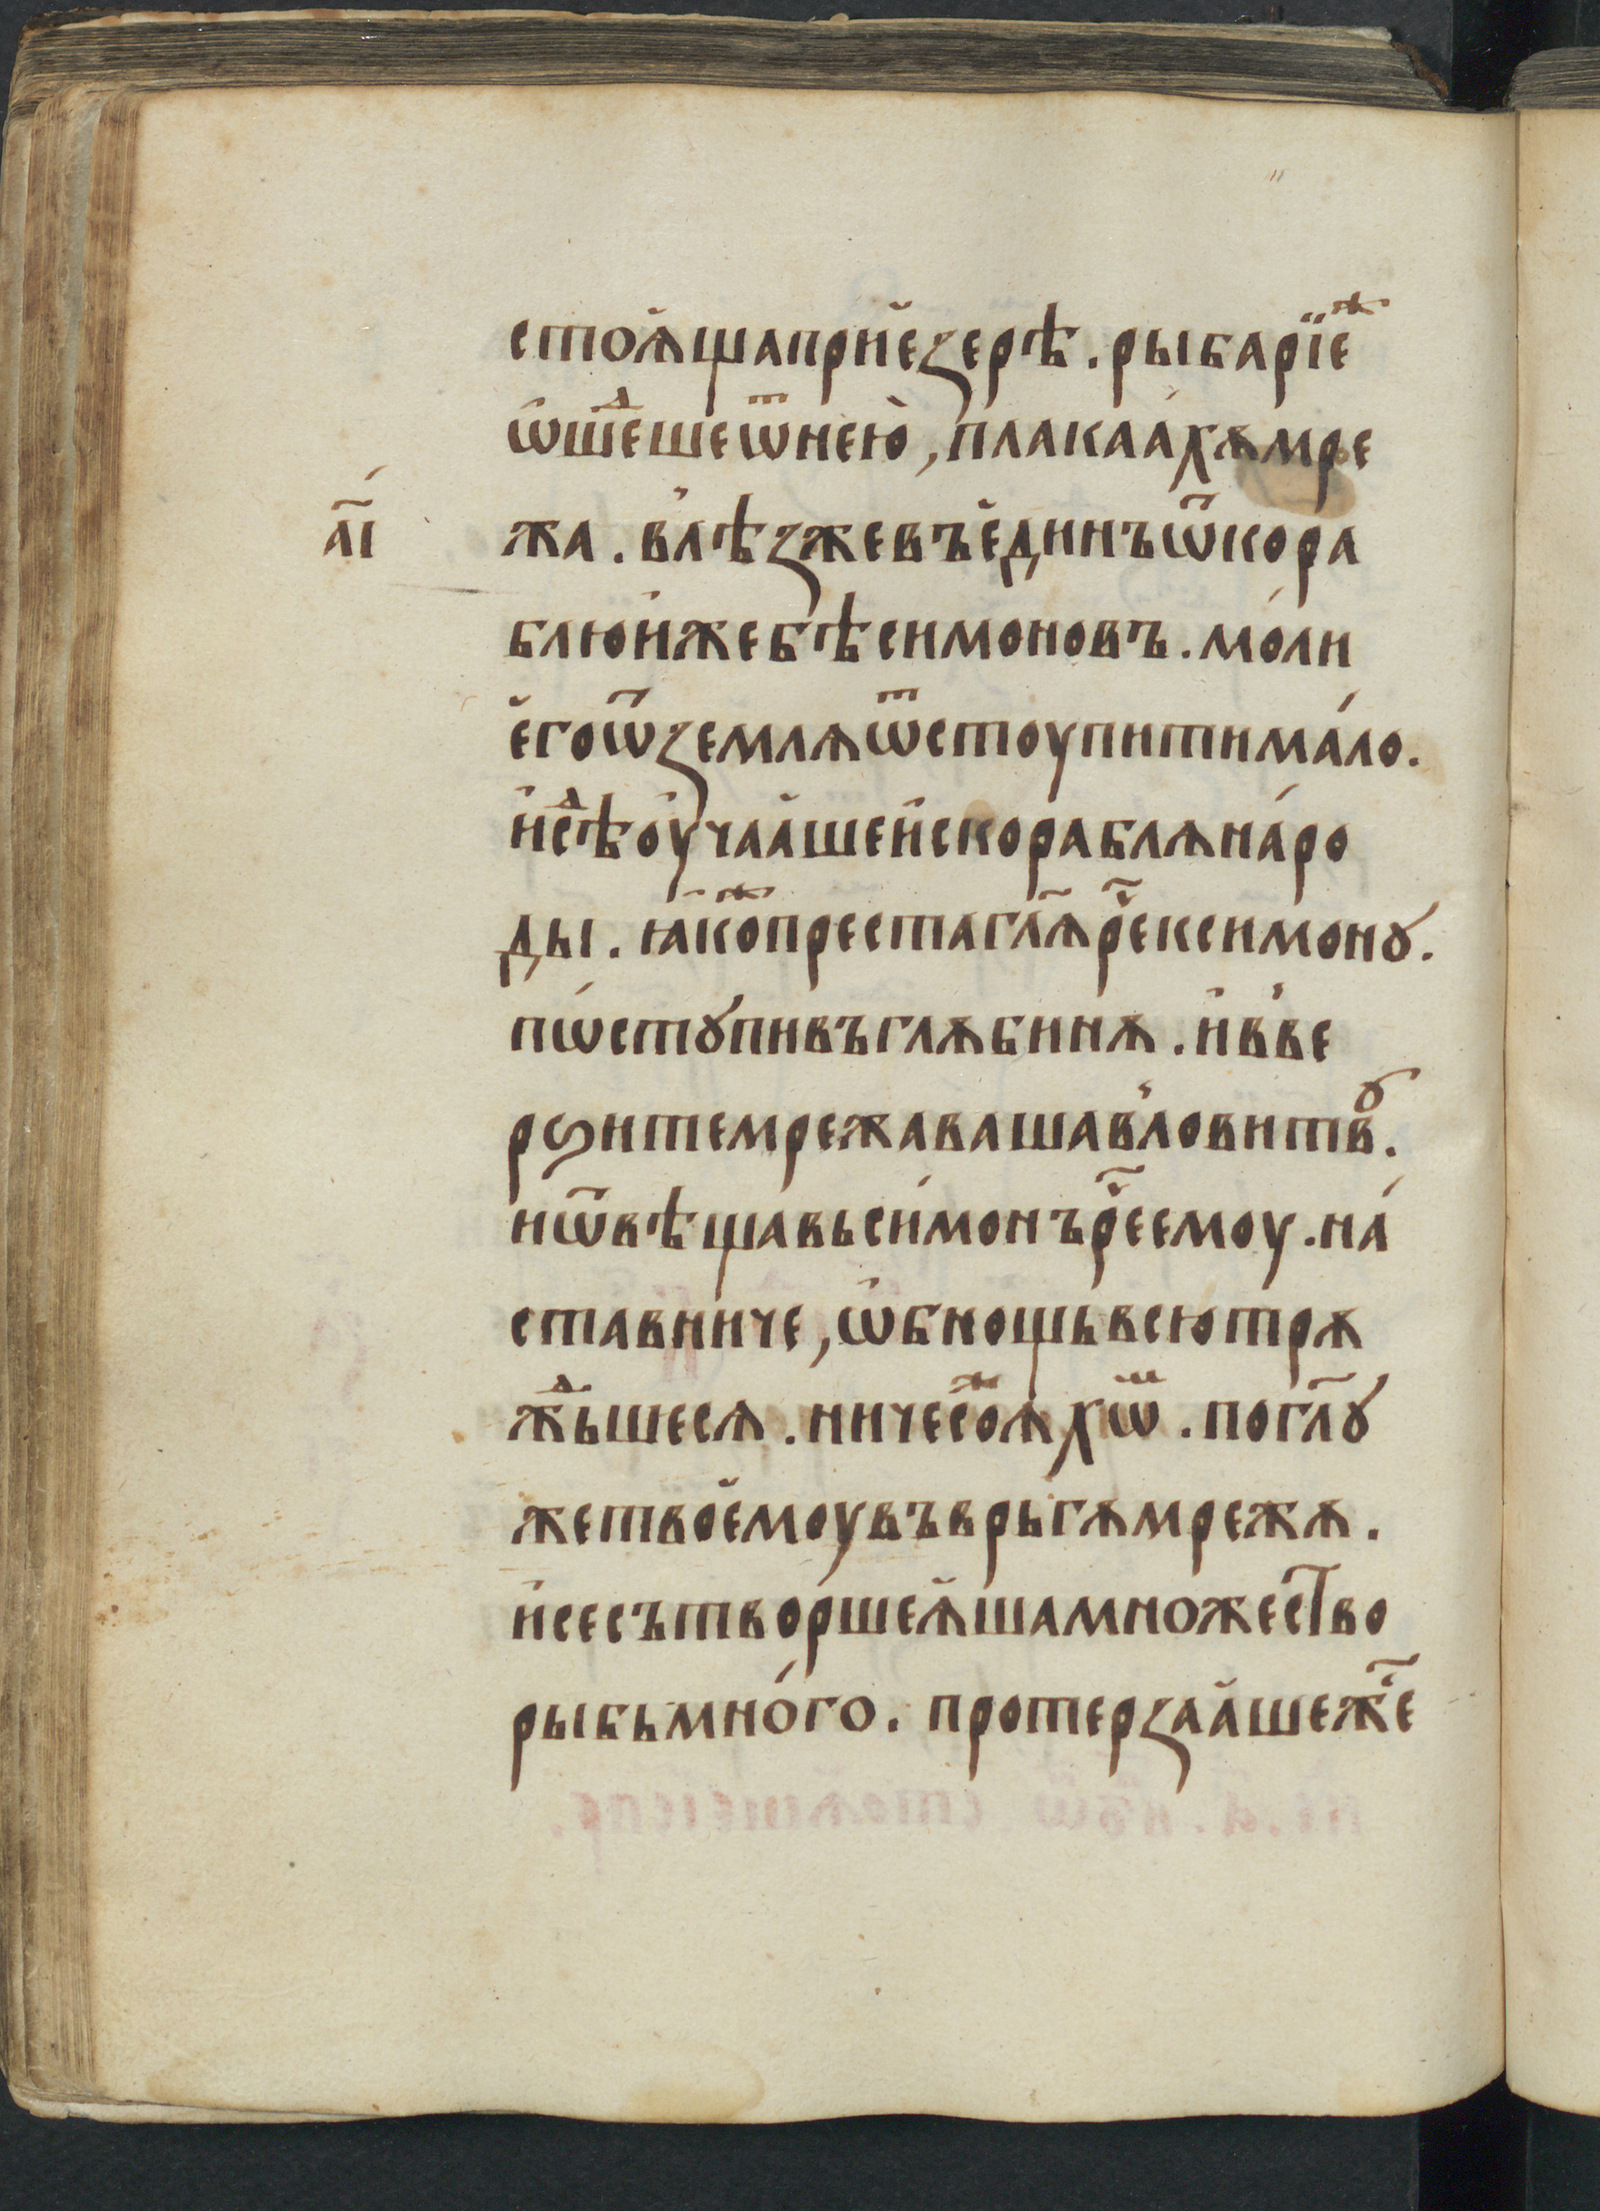 стоѧ҆щаприе҆зерѣ. рыбарїеⷤ
ѡ҆шеⷣшеѿнею҆, плакаа҆хѫмре
а҃і жа. влѣзжевъе҆динъѿкора
блюи҆жебѣсимоновъ. моли
е҆гоѿземлѧѿстоупитима́ло.
и҆сѣⷣоу҆чаа҆шеи҆скораблѧна́ро
ды. ꙗ҆коⷤпрестагл҃ѧре҃ксимонꙋ.
пѡ́стꙋпивъглѫбинѫ. и҆вве
рѕитемрежавашавловитвꙋ.
иѿвѣщавьси́монъре҃емоу. на́
ставниче, ѡ҆бнощьвсютрѫ
жⷣьшесѧ. ничесоⷤѧхѡⷨ. погл҃ꙋ
жетвое҆моувъврьгѫмрежѫ.
и҆сесътво́ршеѧ҆шамножество
рыбьмно́го. протерзаа҆шеж҃е